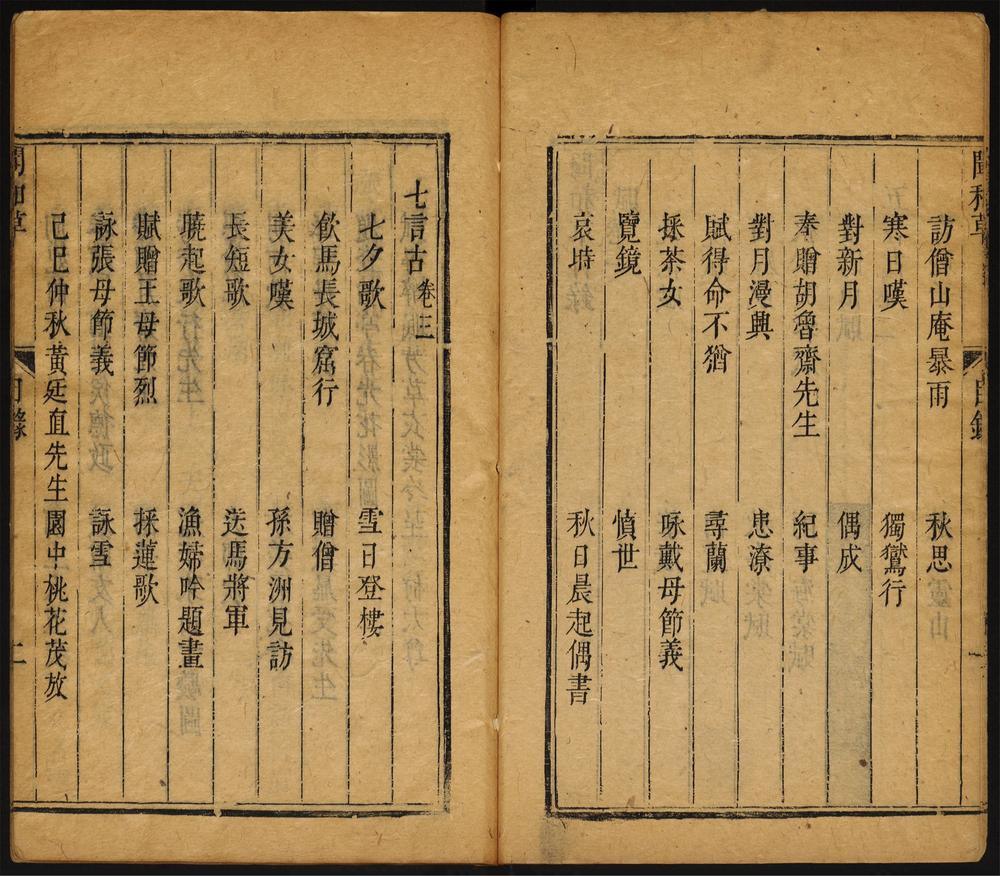 目錄
訪僧山庵暴雨　秋思
寒日嘆　獨鴛行
對新月　偶成
奉贈胡魯齋先生　紀事
對月漫興　患潦
賦得命不猶　尋蘭
採茶女　咏戴母節義
覽鏡　憤世
哀時　秋日晨起偶書
七言古 卷三
七夕歌　雪日登樓
飲馬長城窟行　贈僧
美女嘆　孫方洲見訪
長短歌　送馬將軍
曉起歌　漁婦吟題畫
賦贈王母節烈　採蓮歌
詠張母節義　詠雪
己巳仲秋黃廷直先生園中桃花茂放
目錄 二